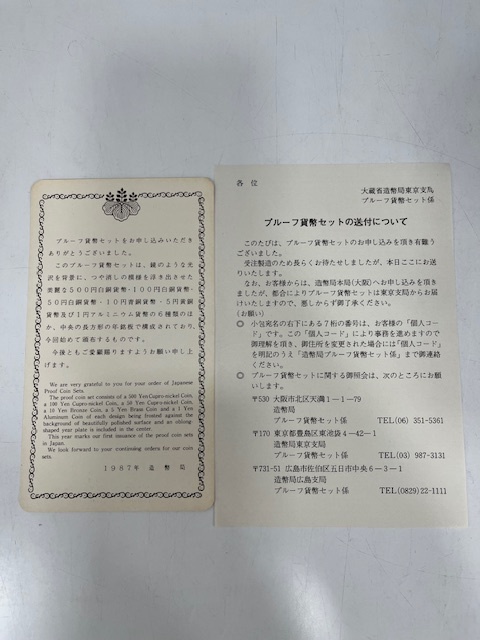 プルーフ貨幣セットをお申し込みいただき
ありがとうございました。
このプルーフ貨幣セットは、鏡のような光
沢を背景に、つや消しの模様を浮き出させた
美麗な500円白銅貨幣・100円白銅貨幣・
50円白銅貨幣・10円青銅貨幣・5円黄銅
貨幣及び1円アルミニウム貨幣の6種類のほ
か、中央の長方形の年銘板で構成されており、
今回始めて頒布するものです。
今後ともご愛顧賜りますようお願い申し上
げます。
We are very grateful to you for your order of Japanese
Proof Coin Sets.
The proof coin set consists of a 500 Yen Cupro-nickel Coin,
a 100 Yen Cupro-nickel Coin, a 50 Yen Cupro-nickel Coin,
a 10 Yen Bronze Coin, a 5 Yen Brass Coin and a 1 Yen
Aluminum Coin of each design being frosted against the
background of beautifully polished surface and an oblong-
shaped year plate is included in the center.
This year marks our first issuance of the proof coin sets
in Japan.
We look forward to your continuing orders for our coin
sets.
1987年 造幣局
各位
大蔵省造幣局東京支局
プルーフ貨幣セット係
プルーフ貨幣セットの送付について
このたびは、プルーフ貨幣セットのお申し込みを頂き有難う
ございました。
受注製造のため長らくお待たせしましたが、本日ここにお送
りいたします。
なお、お客様からは、造幣局本局(大阪)へお申し込みを頂き
ましたが、都合によりプルーフ貨幣セットは東京支局からお届
けいたしますので、悪しからず御了承ください。
(お願い)
◎ 小包宛名の右下にある7桁の番号は、お客様の「個人コー
ド」です。この「個人コード」により事務を進めますので
御理解を頂き、御住所を変更された場合には「個人コード」
を明記のうえ「造幣局プルーフセット係」まで御連絡
ください。
◎ プルーフ貨幣セットに関する御照会は、次のところにお願
いします。
〒530 大阪市北区天満1-1-79
造幣局
プルーフ貨幣セット係 TEL(06) 351-5361
〒170 東京都豊島区東池袋4-42-1
造幣局東京支局
プルーフ貨幣セット係 TEL(03) 987-3131
〒731-51 広島市佐伯区五日市中央6-3-1
造幣局広島支局
プルーフ貨幣セット係 TEL(0829)22-1111